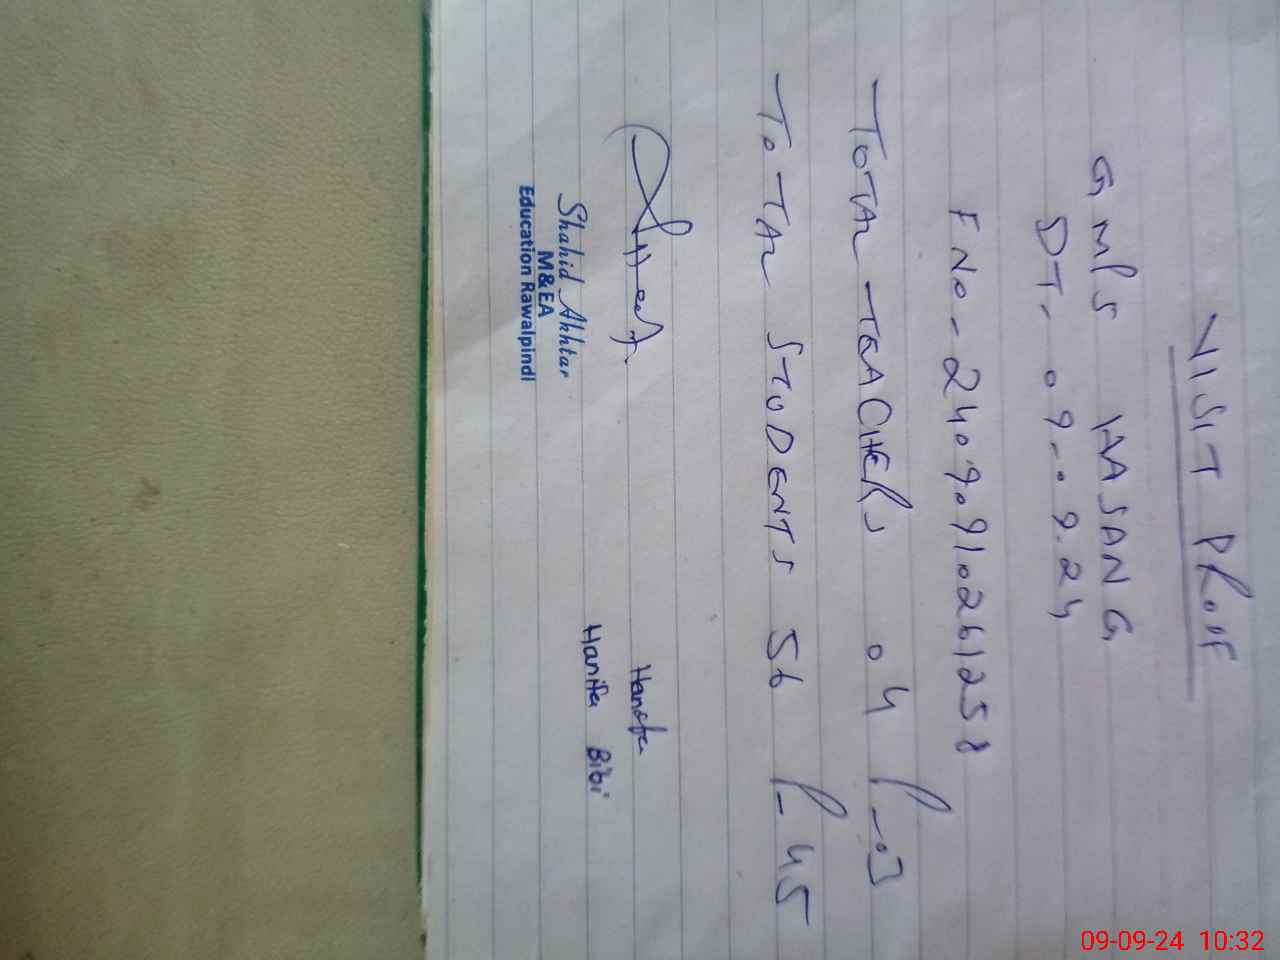 VISIT PROOF
GMPS HASANG
DT. 09.09.24
F No- 24090910261258
TOTAL TEACHERS 04 P-03
TOTAL STUDENTS 56 P-45
Hanifa
Hanifa Bibi
Shahid Akhtar
M&EA
Education Rawalpindi
09-09-24 10:32